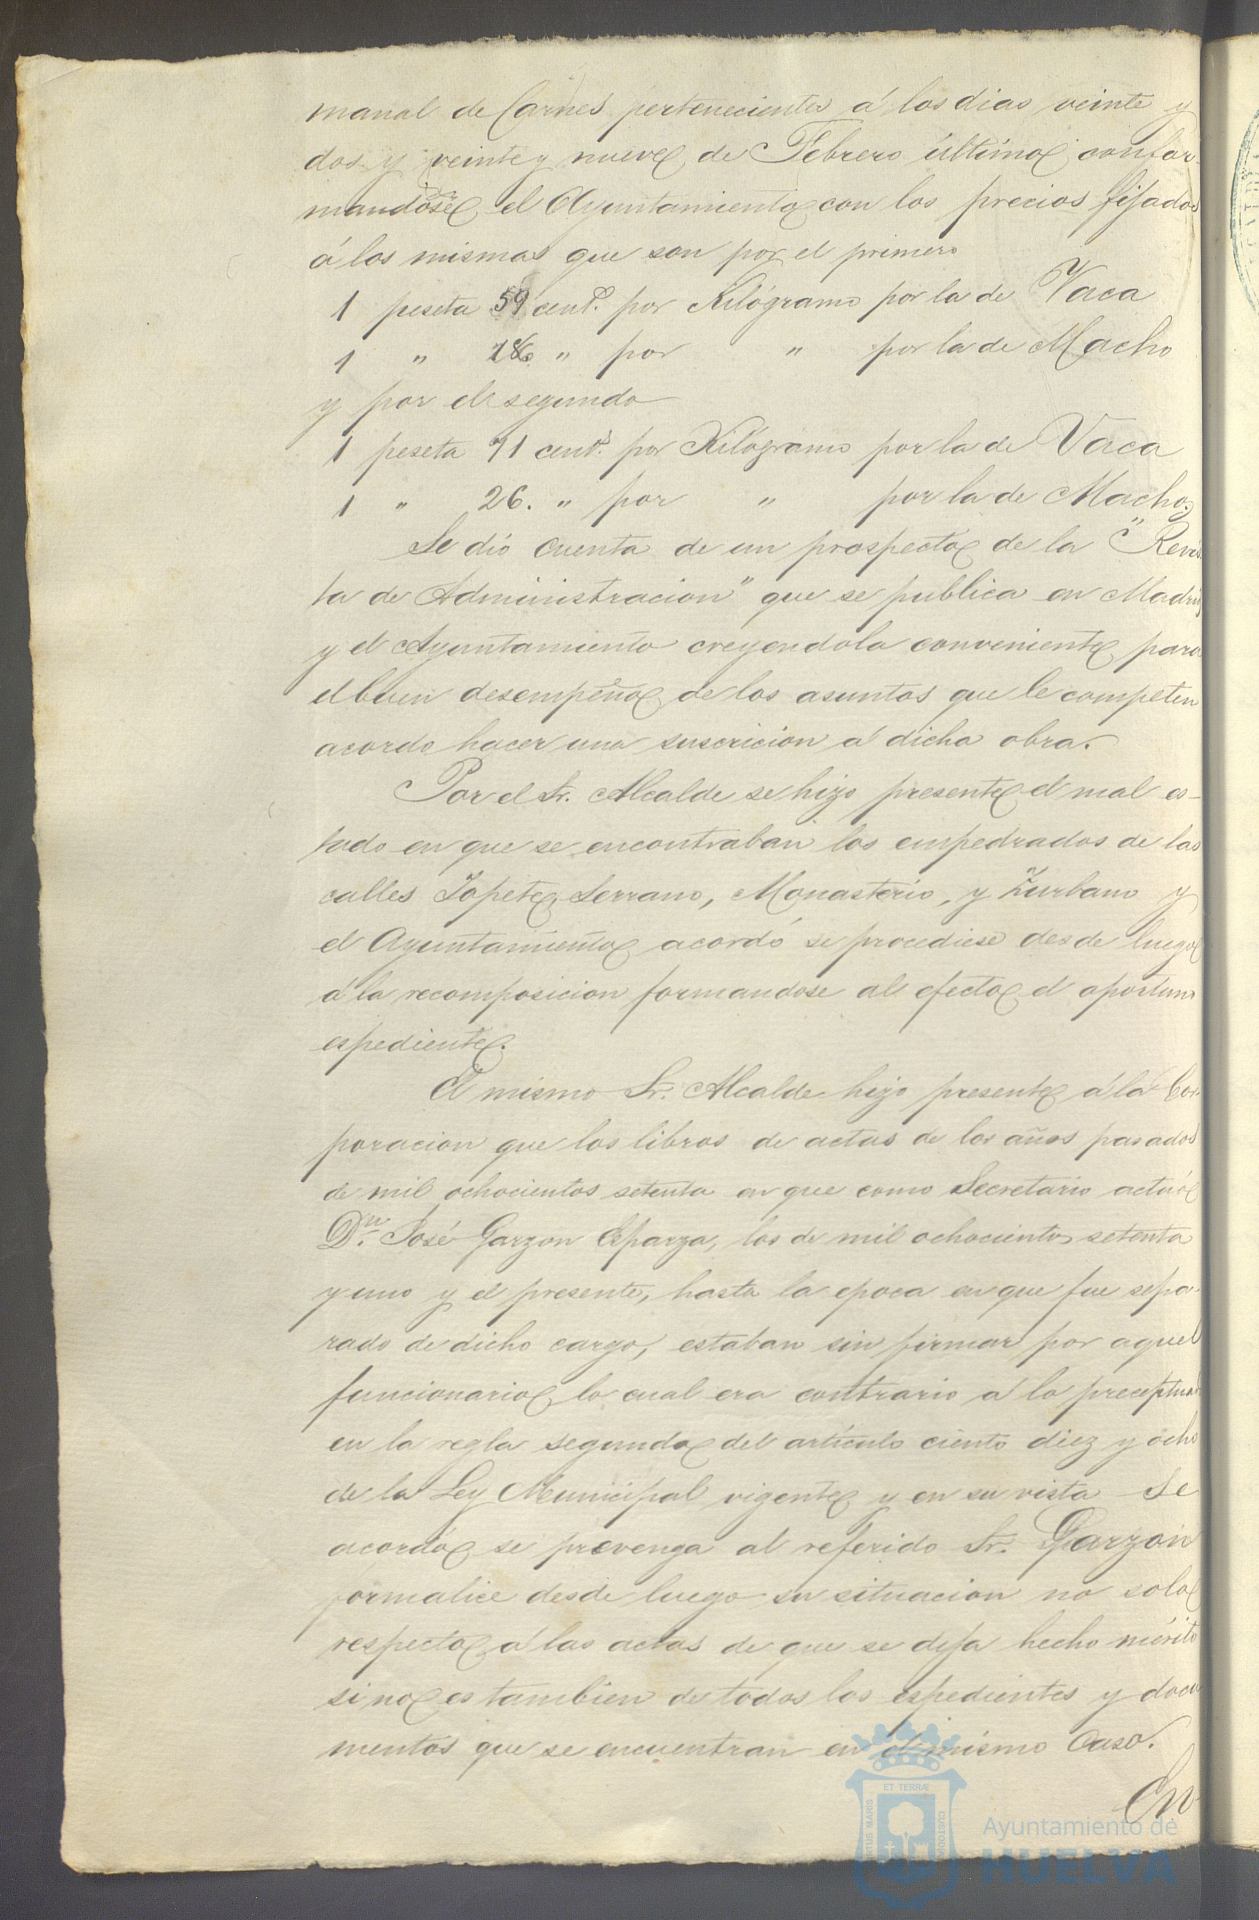 manal de Carnes perteneciente á los dias veinte y
dos y veinte y nueve de Febrero último confor-
mandose el Ayuntamiento con los precios fijados
á los mismos que son por el primero
1 peseta 59 cent.s por Kilógramo por la de Vaca
1 " " por " por la de Macho
y por el segundo
1 peseta 71 cent.s por Kilógramo por la de Vaca
1 " 26. " por " por la de Macho.
Se dió cuenta de un prospecto de la "Revis
ta de Administracion" que se publica en Madrid
y el Ayuntamiento creyendola conveniente para
el buen desempeño de los asuntos que le competen
acordo hacer una suscricion á dicha obra.
Por el Sr. Alcalde se hizo presente el mal es-
tado en que se encontraban los empedrados de las
calles Topete, Serrano, Monasterio, y Zurbano y
el Ayuntamiento acordó se procediese desde luego
á la recomposicion formandose al efecto el oportuno
espediente.
El mismo Sr. Alcalde hizo presente á la Cor-
poracion que los libros de actas de los años pasados
de mil ochocientos setenta en que como Secretario actuó
Dn. José Garzon Esparza, los de mil ochocientos setenta
y uno y el presente, hasta la epoca en que fue sepa-
rado de dicho cargo, estaban sin firmar por aquel
funcionario lo cual era contrario á lo preceptua
en la regla segunda del artículo ciento diez y ocho
de la Ley Municipal vigente y en su vista Se
acordó se prevenga al referido Sr. Garzon
formalice desde luego su situacion no solo
respecto á las actas de que se deja hecho mérito
sino es tambien de todos los espedientes y docu
mentos que se encuentran en el mismo Caso.
En
Ayuntamiento de
HUELVA
ET TERRÆ
PORTUS MARIS
CUSTODIA